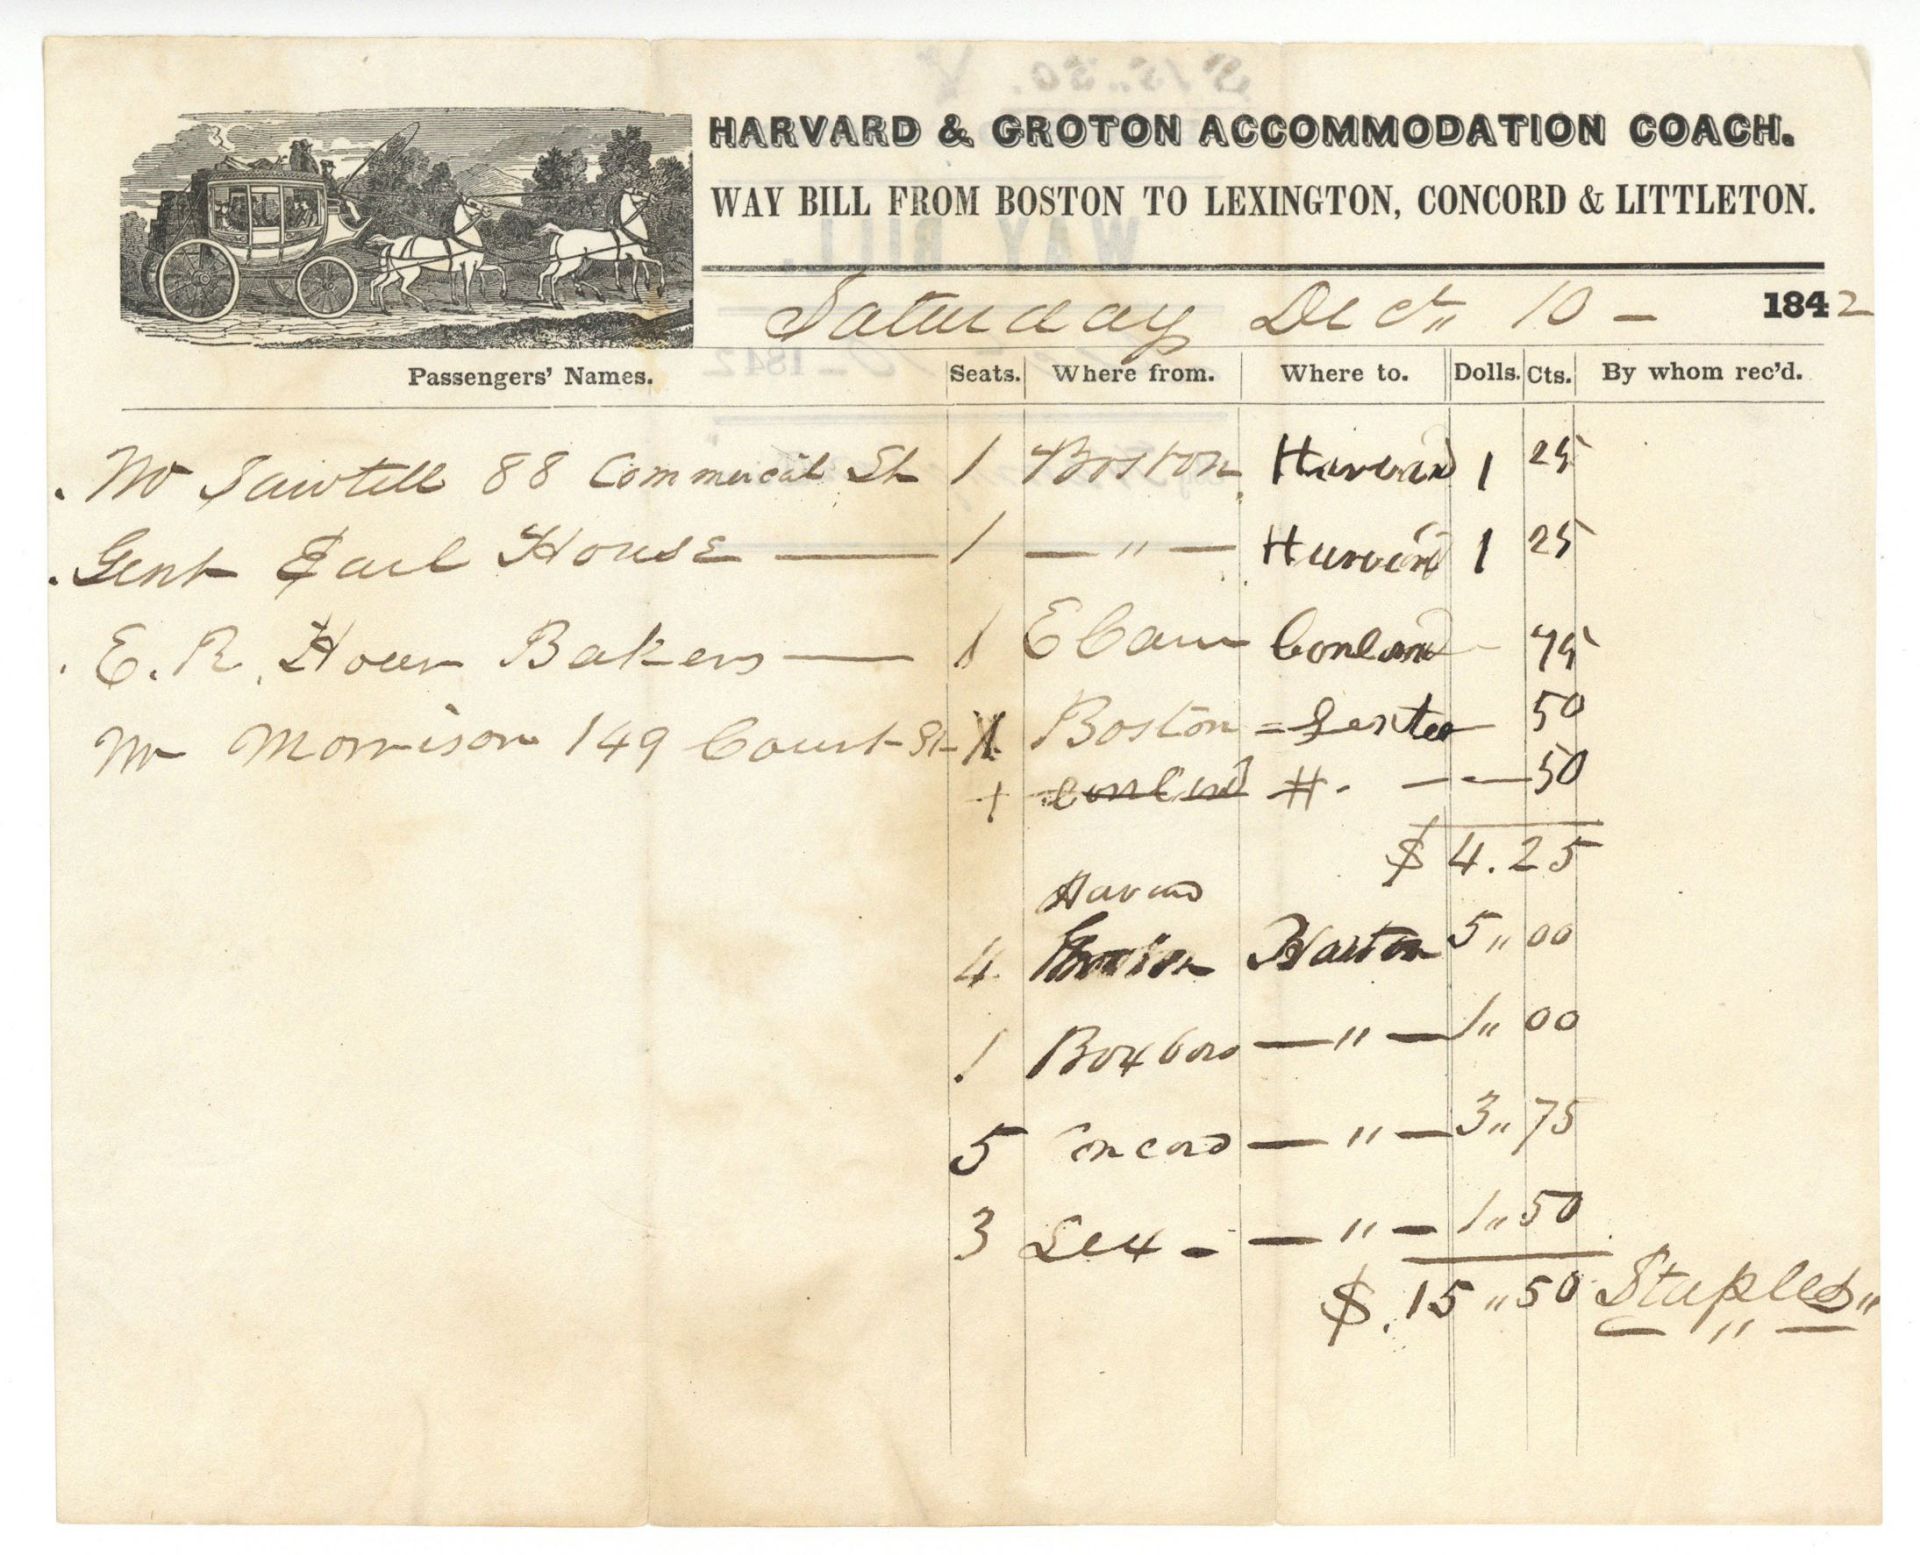 HARVARD & GROTON ACCOMMODATION COACH.
WAY BILL FROM BOSTON TO LEXINGTON, CONCORD & LITTLETON.
Saturday Dec" 10 - 1842
Passengers' Names. Seats. Where from. Where to. Dolls. Cts. By whom rec'd.
Sawtell 88 Commercial St 1 Boston Harvard 1 25
Gent Earl House — 1 — " — Harvard 1 25
E. R. Hoar Bakers — 1 E Cam 75
Mr Morrison 149 Court St 1 Boston = 50
1 Concord H. — — 50
$ 4.25
Harvard
4 5 " 00
1 Boxboro — " — 1 " 00
5 Concord — " — 3 " 75
3 Lex - — " — 1 " 50
$ . 15 " 50 Staples "
— " —